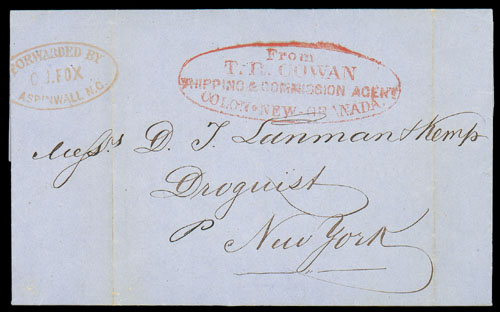 FORWARDED BY
C. J. FOX
ASPINWALL N.G.
From
T. B. COWAN
SHIPPING & COMMISSION AGENT
COLON, NEW-GRANADA.
Messrs D. T. Lanman & Kemp
Droguist
P New York